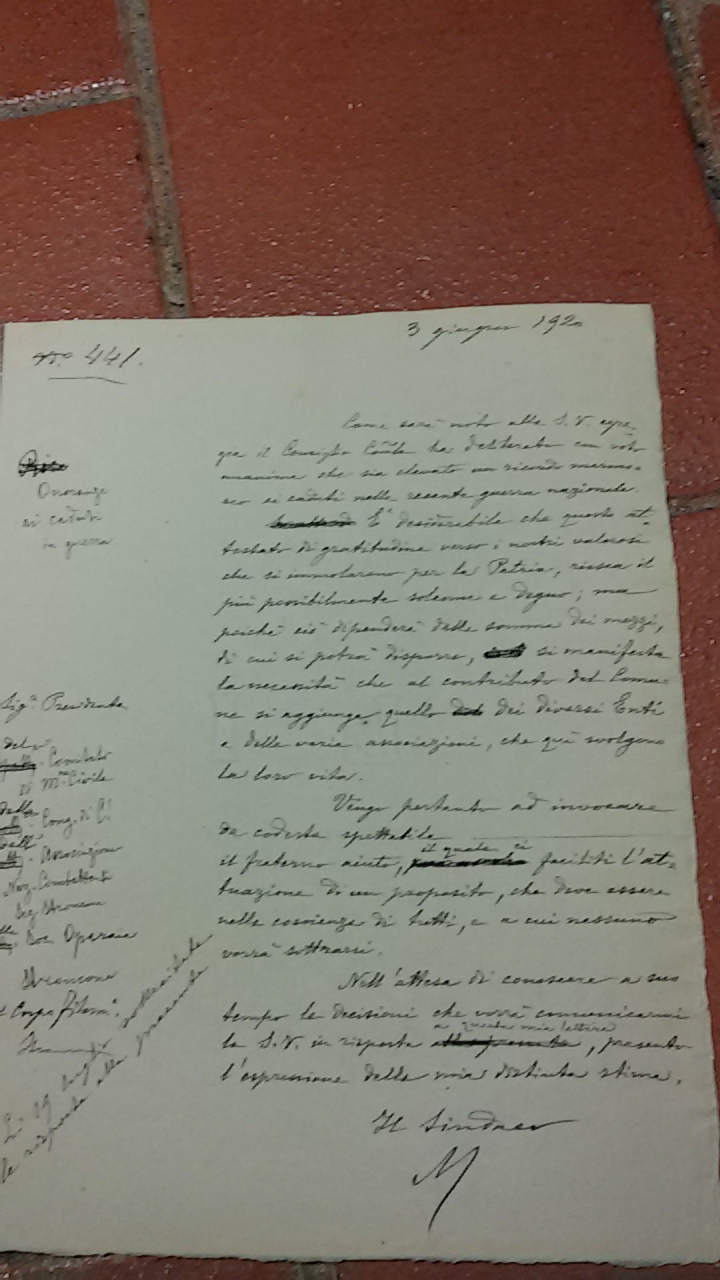 3 giugno 1920
N° 441.
Come sarà noto alla S.V. egre-
gia il Consiglio Com.le ha deliberato con voto
unanime che sia elevato un ricordo marmo-
reo ai caduti nella recente guerra nazionale.
Onoranze
ai caduti
in guerra
E' desiderabile che questo at-
testato di gratitudine verso i nostri valorosi
che si immolarono per la Patria, riesca il
più possibilmente solenne e degno; ma
poichè ciò dipenderà dalla somma dei mezzi,
di cui si potrà disporre, si manifesta
la necessità che al contributo del Comu-
ne si aggiunga quello dei diversi Enti
e delle varie associazioni, che quì svolgono
la loro vita.
Sig. Presidente
del
Comitato
di M. Civile
della
Cong. di C.
dell'
Associazione
Naz. Combattenti
Sez. Stroncone
Soc. Operaia
Stroncone
Corpo Filarm.
Vengo pertanto ad invocare
da codesta spettabile
il fraterno aiuto, il quale ci faciliti l'at-
tuazione di un proposito, che deve essere
nella coscienza di tutti, e a cui nessuno
vorrà sottrarsi.
Nell'attesa di conoscere a suo
tempo le decisioni che vorrà comunicarmi
la S.V. in risposta a questa mia lettera, presento
l'espressione della mia distinta stima.
Il Sindaco
M
Li 19 sollecitate
le risposte alla presente